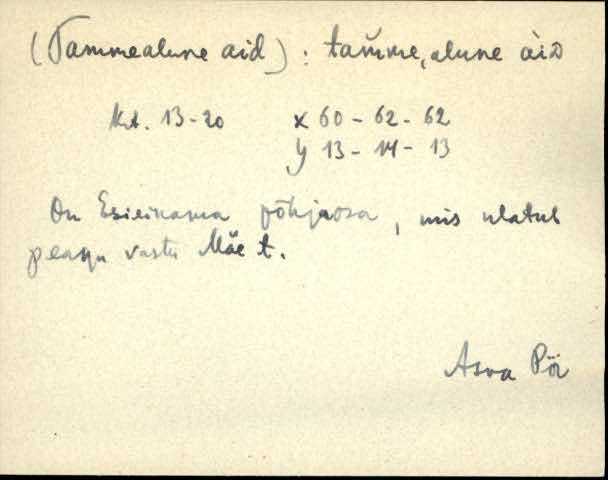 (Tammealune aid) : tam̆me,alune àid
Krt. 13-20 x 60 - 62 - 62
y 13 - 14 - 13
On Esieinama põhjaosa, mis ulatub
peagu vastu Mäe t.
Asva Pöi